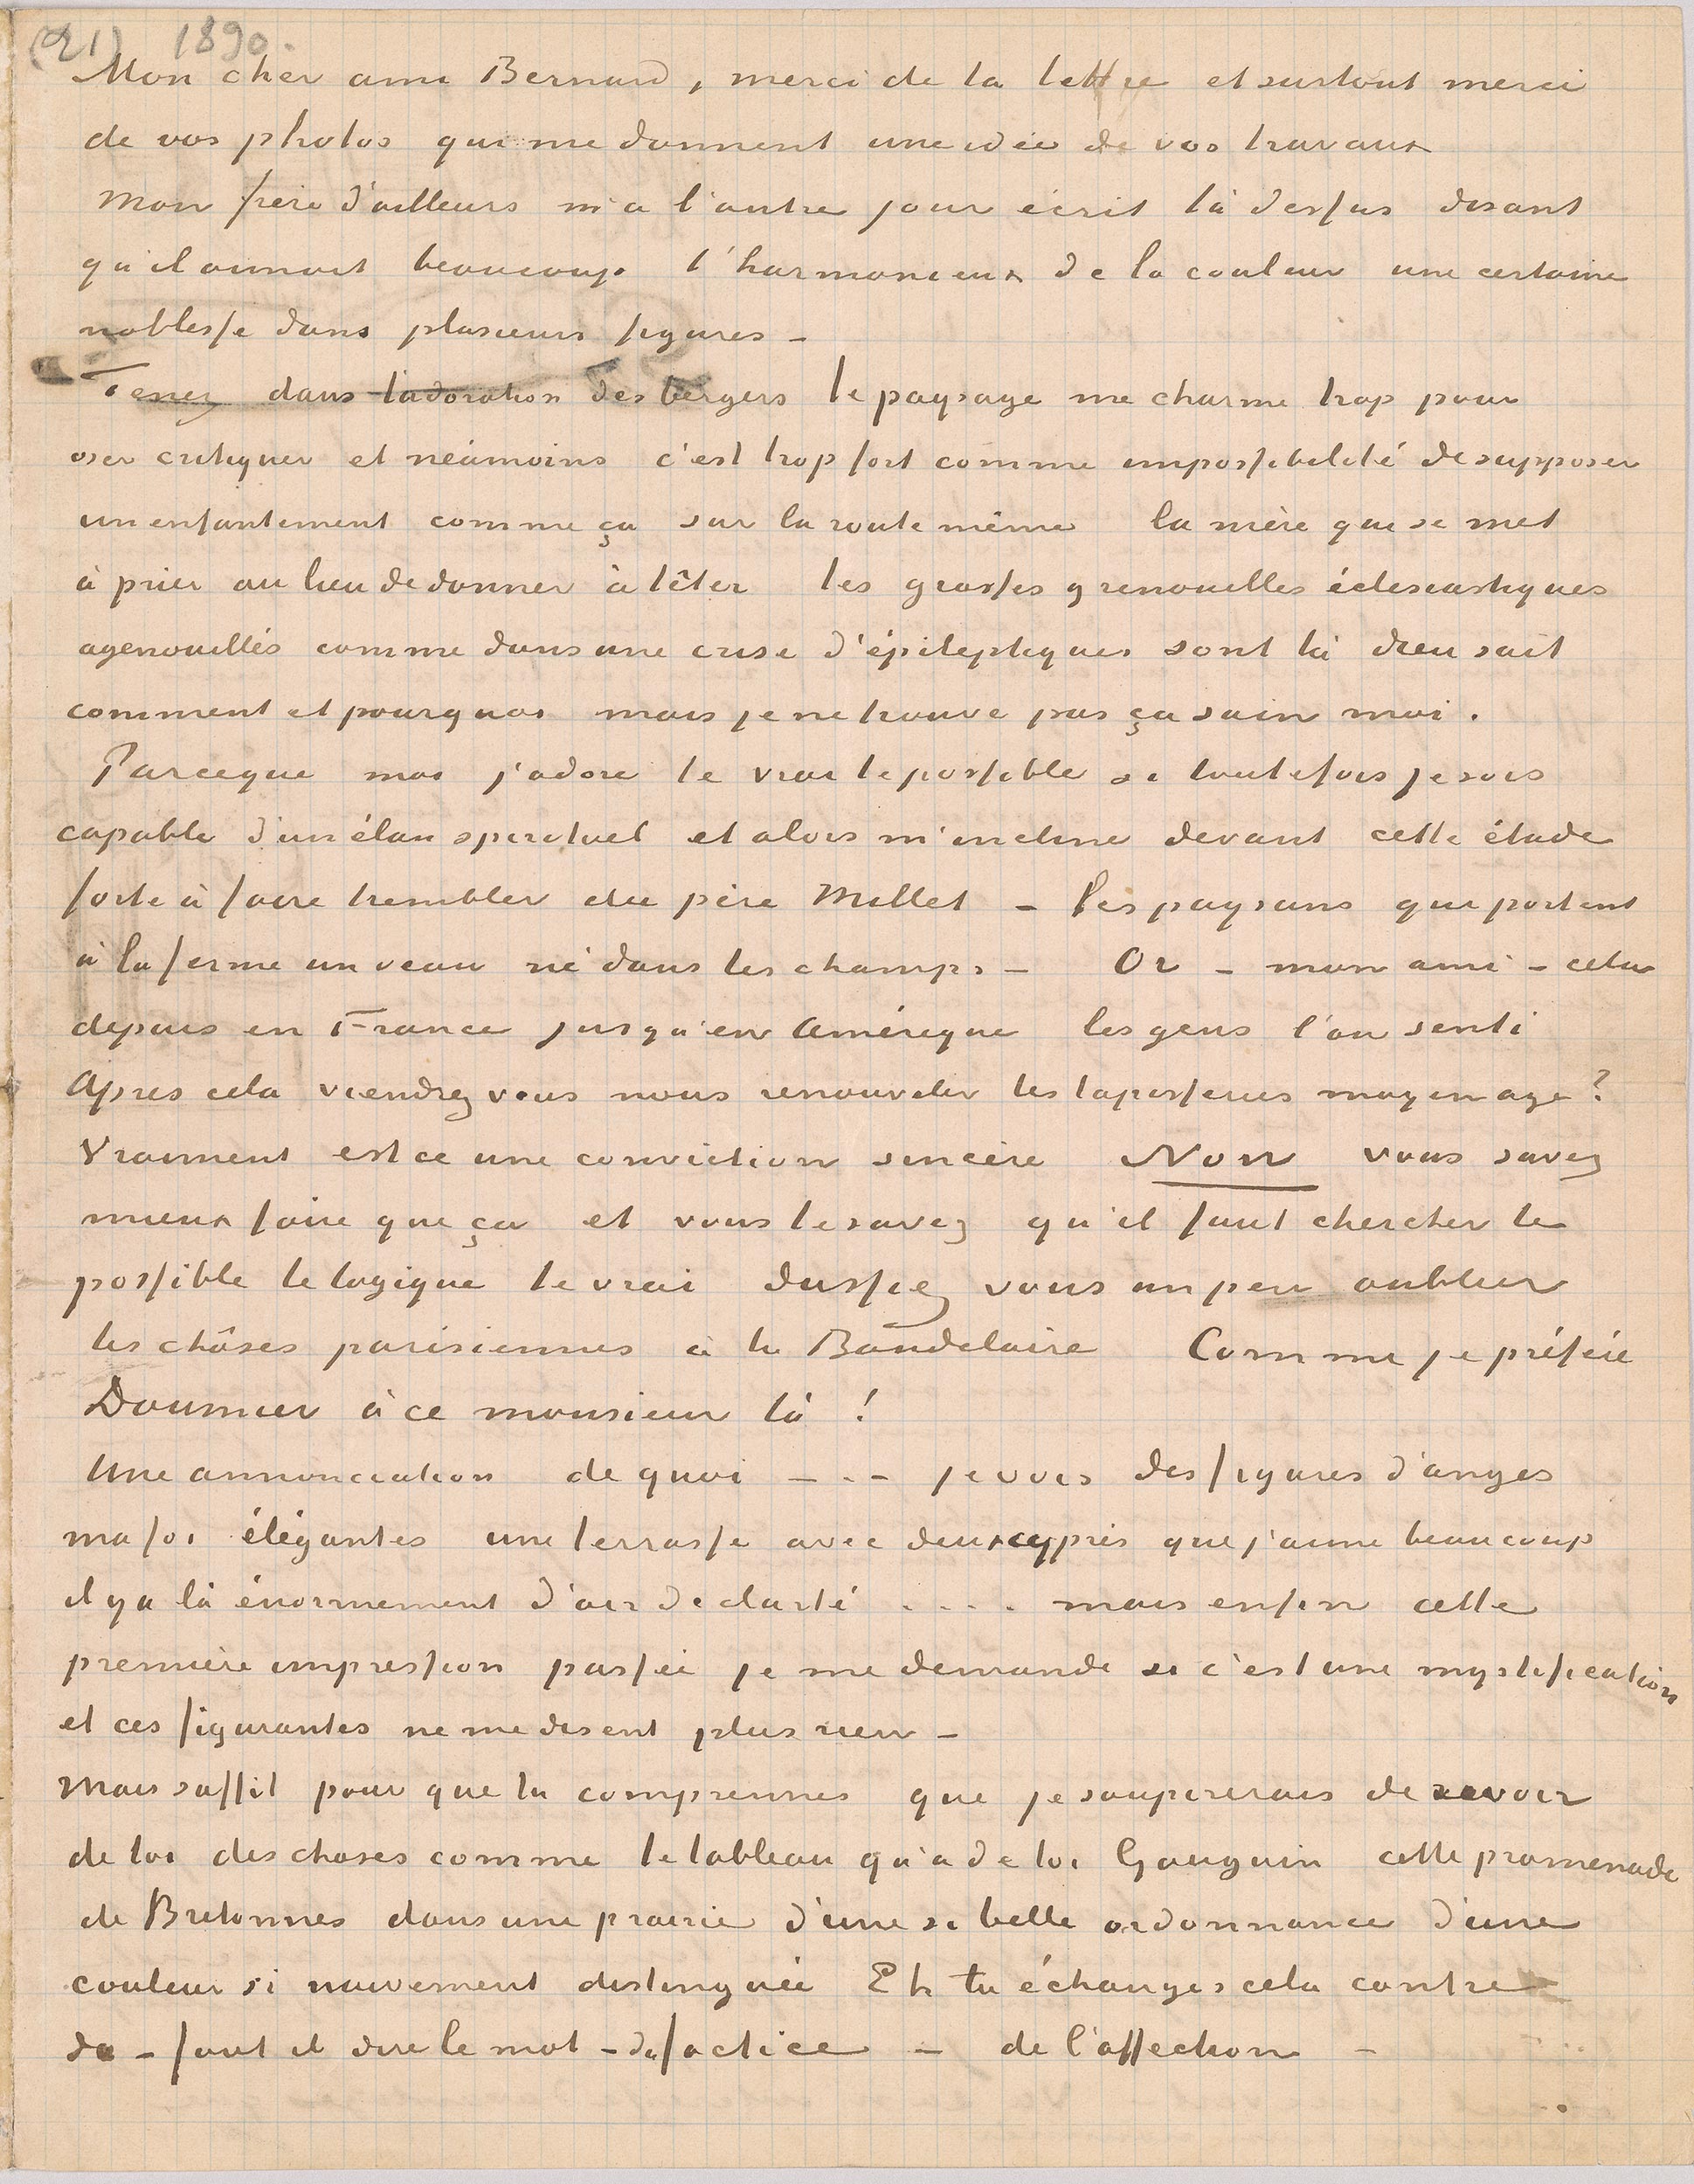 (21) 1890.
Mon cher ami Bernard, merci de ta lettre et surtout merci
de vos photos qui me donnent une idée de vos travaux
Mon frère d'ailleurs m'a l'autre jour écrit là dessus disant
qu'il aimait beaucoup l'harmonieux de la couleur une certaine
noblesse dans plusieurs figures –
Tenez dans l'adoration des bergers le paysage me charme trop pour
oser critiquer et néamoins c'est trop fort comme impossibilité de supposer
un enfantement comme ça sur la route même la mère qui se met
à prier au lieu de donner à têter les grosses grenouilles éclesiastiques
agenouillés comme dans une crise d'épileptiques sont là dieu sait
comment et pourquoi mais je ne trouve pas ça sain moi.
Parceque moi j'adore le vrai le possible si toutefois je suis
capable d'un élan spirituel et alors m'incline devant cette étude
forte à faire trembler du père Millet – les paysans qui portent
à la ferme un veau né dans les champs – Or – mon ami – cela
depuis en France jusqu'en Amérique les gens l'on senti
Après cela viendrez vous nous renouveler les tapisseries moyen age?
Vraiment est ce une conviction sincère Non vous savez
mieux faire que ça et vous le savez qu'il faut chercher le
possible le logique le vrai dussiez vous un peu oublier
les chôses parisiennes à la Baudelaire Comme je préfère
Daumier à ce monsieur là !
Une annonciation de quoi – . – je vois des figures d'anges
ma foi élégantes une terrasse avec deux cyprès que j'aime beaucoup
il y a là énormement d'air de clarté . . . . mais enfin cette
première impression passée je me demande si c'est une mystification
et ces figurantes ne me disent plus rien –
Mais suffit pour que tu comprennes que je soupirerais de revoir
de toi des choses comme le tableau qu'a de toi Gauguin cette promenade
de Bretonnes dans une prairie d'une si belle ordonnance d'une
couleur si naivement distinguée Eh tu échanges cela contre
du – faut il dire le mot – du factice – de l'affection –